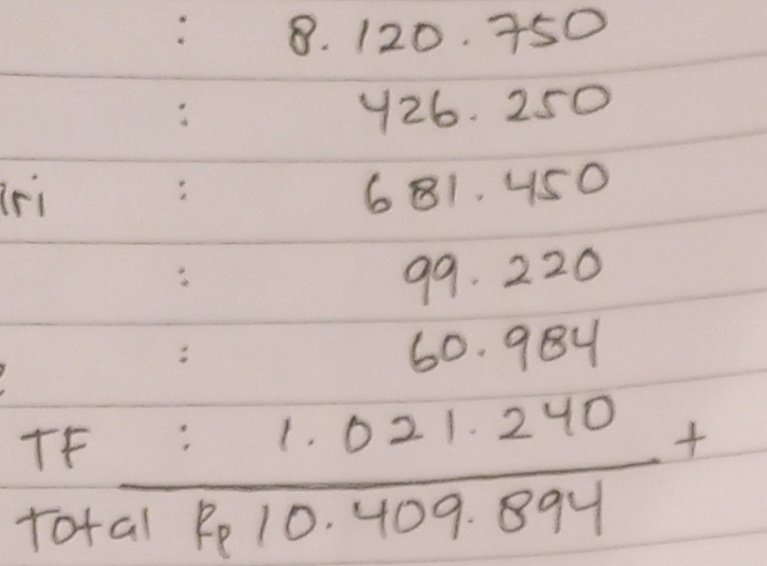 : 8.120.750
: 426.250
iri : 681.450
: 99.220
: 60.984
TF : 1.021.240 +
Total Rp 10.409.894